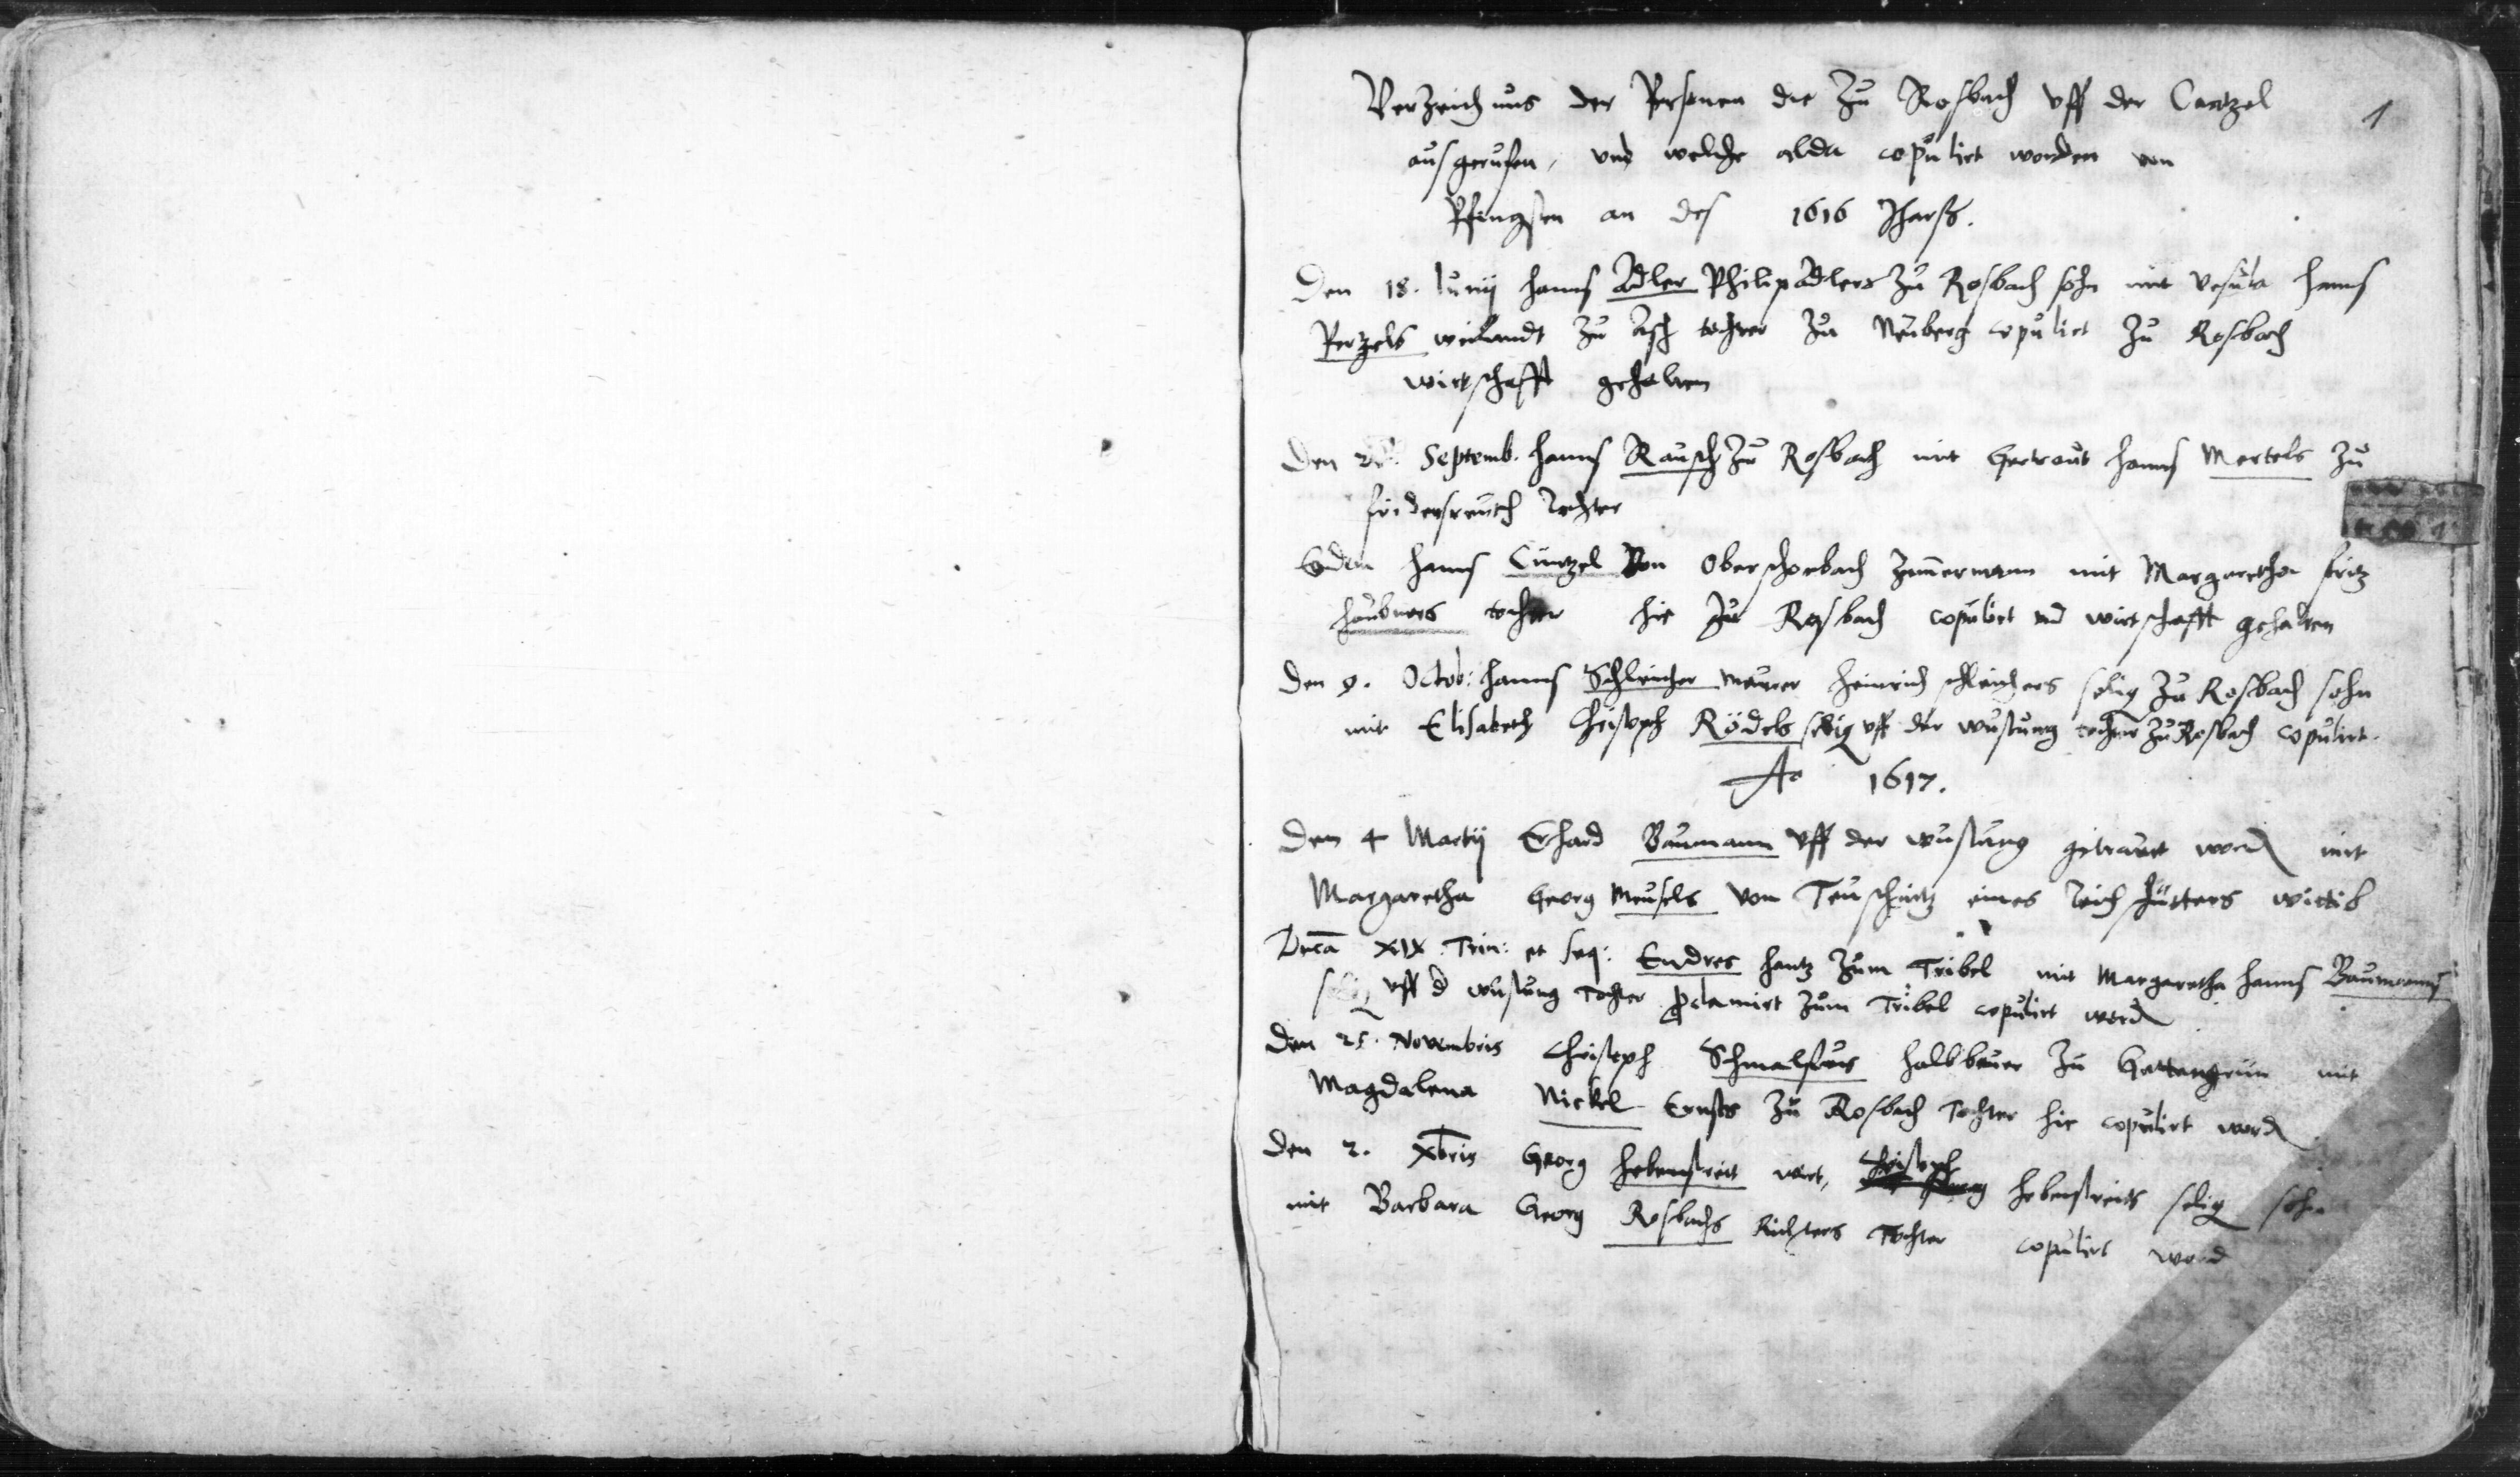 1
Verzeichnus der Personen die zu Rosbach vff der Cantzel
ausgerufen, vnd welche alda copulirt worden von
Pfingsten an des 1616 Jhars.
Den 18. Junij Hanns Adler Philip adlers zu Rosbach sohn mit Vrsula Hanns
Pertzels weilandt zu Asch tochter zu Neuberg copulirt zu Rosbach
wirtschafft gehalten
Den Septemb. Hanns Rausch zu Rosbach mit Gertraut Hanns Mertels zu
fridersreuth tochter
Eodem Hanns Cuntzel von Oberschonbach Zimmerman mit Margaretha fritz
Haubners tochter hie zu Rosbach copulirt vnd wirtschafft gehalten
Den 9. Octob: Hanns Schleicher maurer Heinrich schleichers selig zu Rosbach sohn
mit Elisabeth Christoph Rödels selig vff der wustung tochter zu Rosbach copulirt.
Ao 1617.
Den 4 Martij Erhard Baumann vff der wustung getrauet word mit
Margaretha Georg Meusels von Teuschnitz eines wittib
XIX Trin: et seq: Endres Hantz zum Tribel mit Margaretha Hanns Baumanns
selig vff d wustung Tochter proclamirt zum Tribel copulirt word
Den 25. Novembris Christoph Schmalfus halbbauer zu Gettengrün mit
Magdalena Nickel Ernsts zu Rosbach Tochter hie copulirt word
Den 2. Xbris Georg Hebenstreit wirt, Christoph Hebenstreits selig sohn
mit Barbara Georg Rosbachs Richters Tochter copulirt word